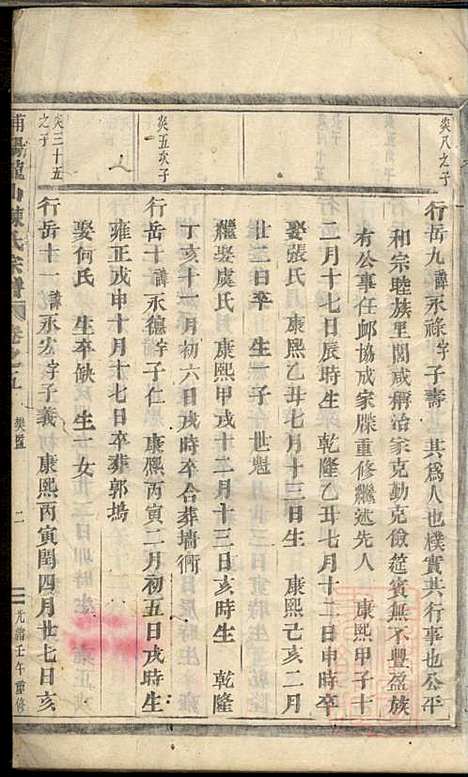 炎八之子
行岳九諱永祿字子壽 其爲人也樸實其行事也公平
和宗睦族里閭咸稱治家克勤克儉筵賓無不豐盈族
有公事任郵協成家牒重修繼述先人 康熙甲子十
二月十七日辰時生 乾隆乙丑七月十二日申時卒
娶張氏 康熙乙丑七月十三日生 康熙己亥二月
廿二日卒 生一子 世魁
繼娶虞氏 康熙甲戌十二月十三日亥時生 乾隆
丁亥十一月初六日戌時卒合葬墻衕
炎五次子
行岳十諱永德字子仁 康熙丙寅二月初五日戌時生
雍正戊申十月十七日卒葬郭塢
娶何氏 生卒缺 生一女
炎三十五之子
行岳十一諱永宏字子義 康熙丙寅閏四月廿七日亥
陳氏宗譜 卷之五 二 光緒壬午重修